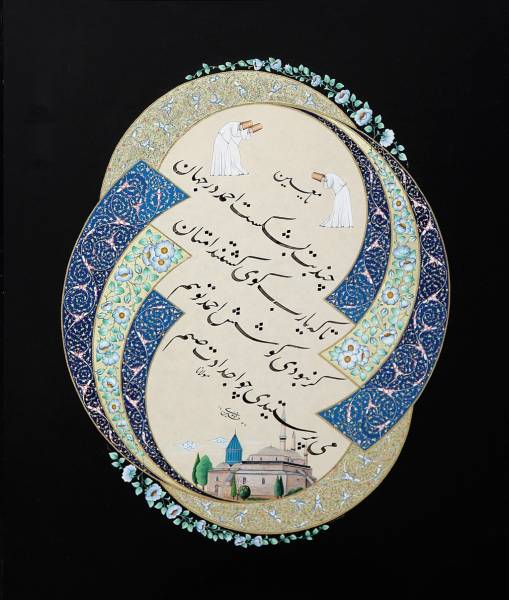 یا معین
چند بت بشکست احمد در جهان
تا که یا رب گوی گشتند امتان
گر نبودی کوشش احمد تو هم
می پرستیدی چو اجدادت صنم
مولانا